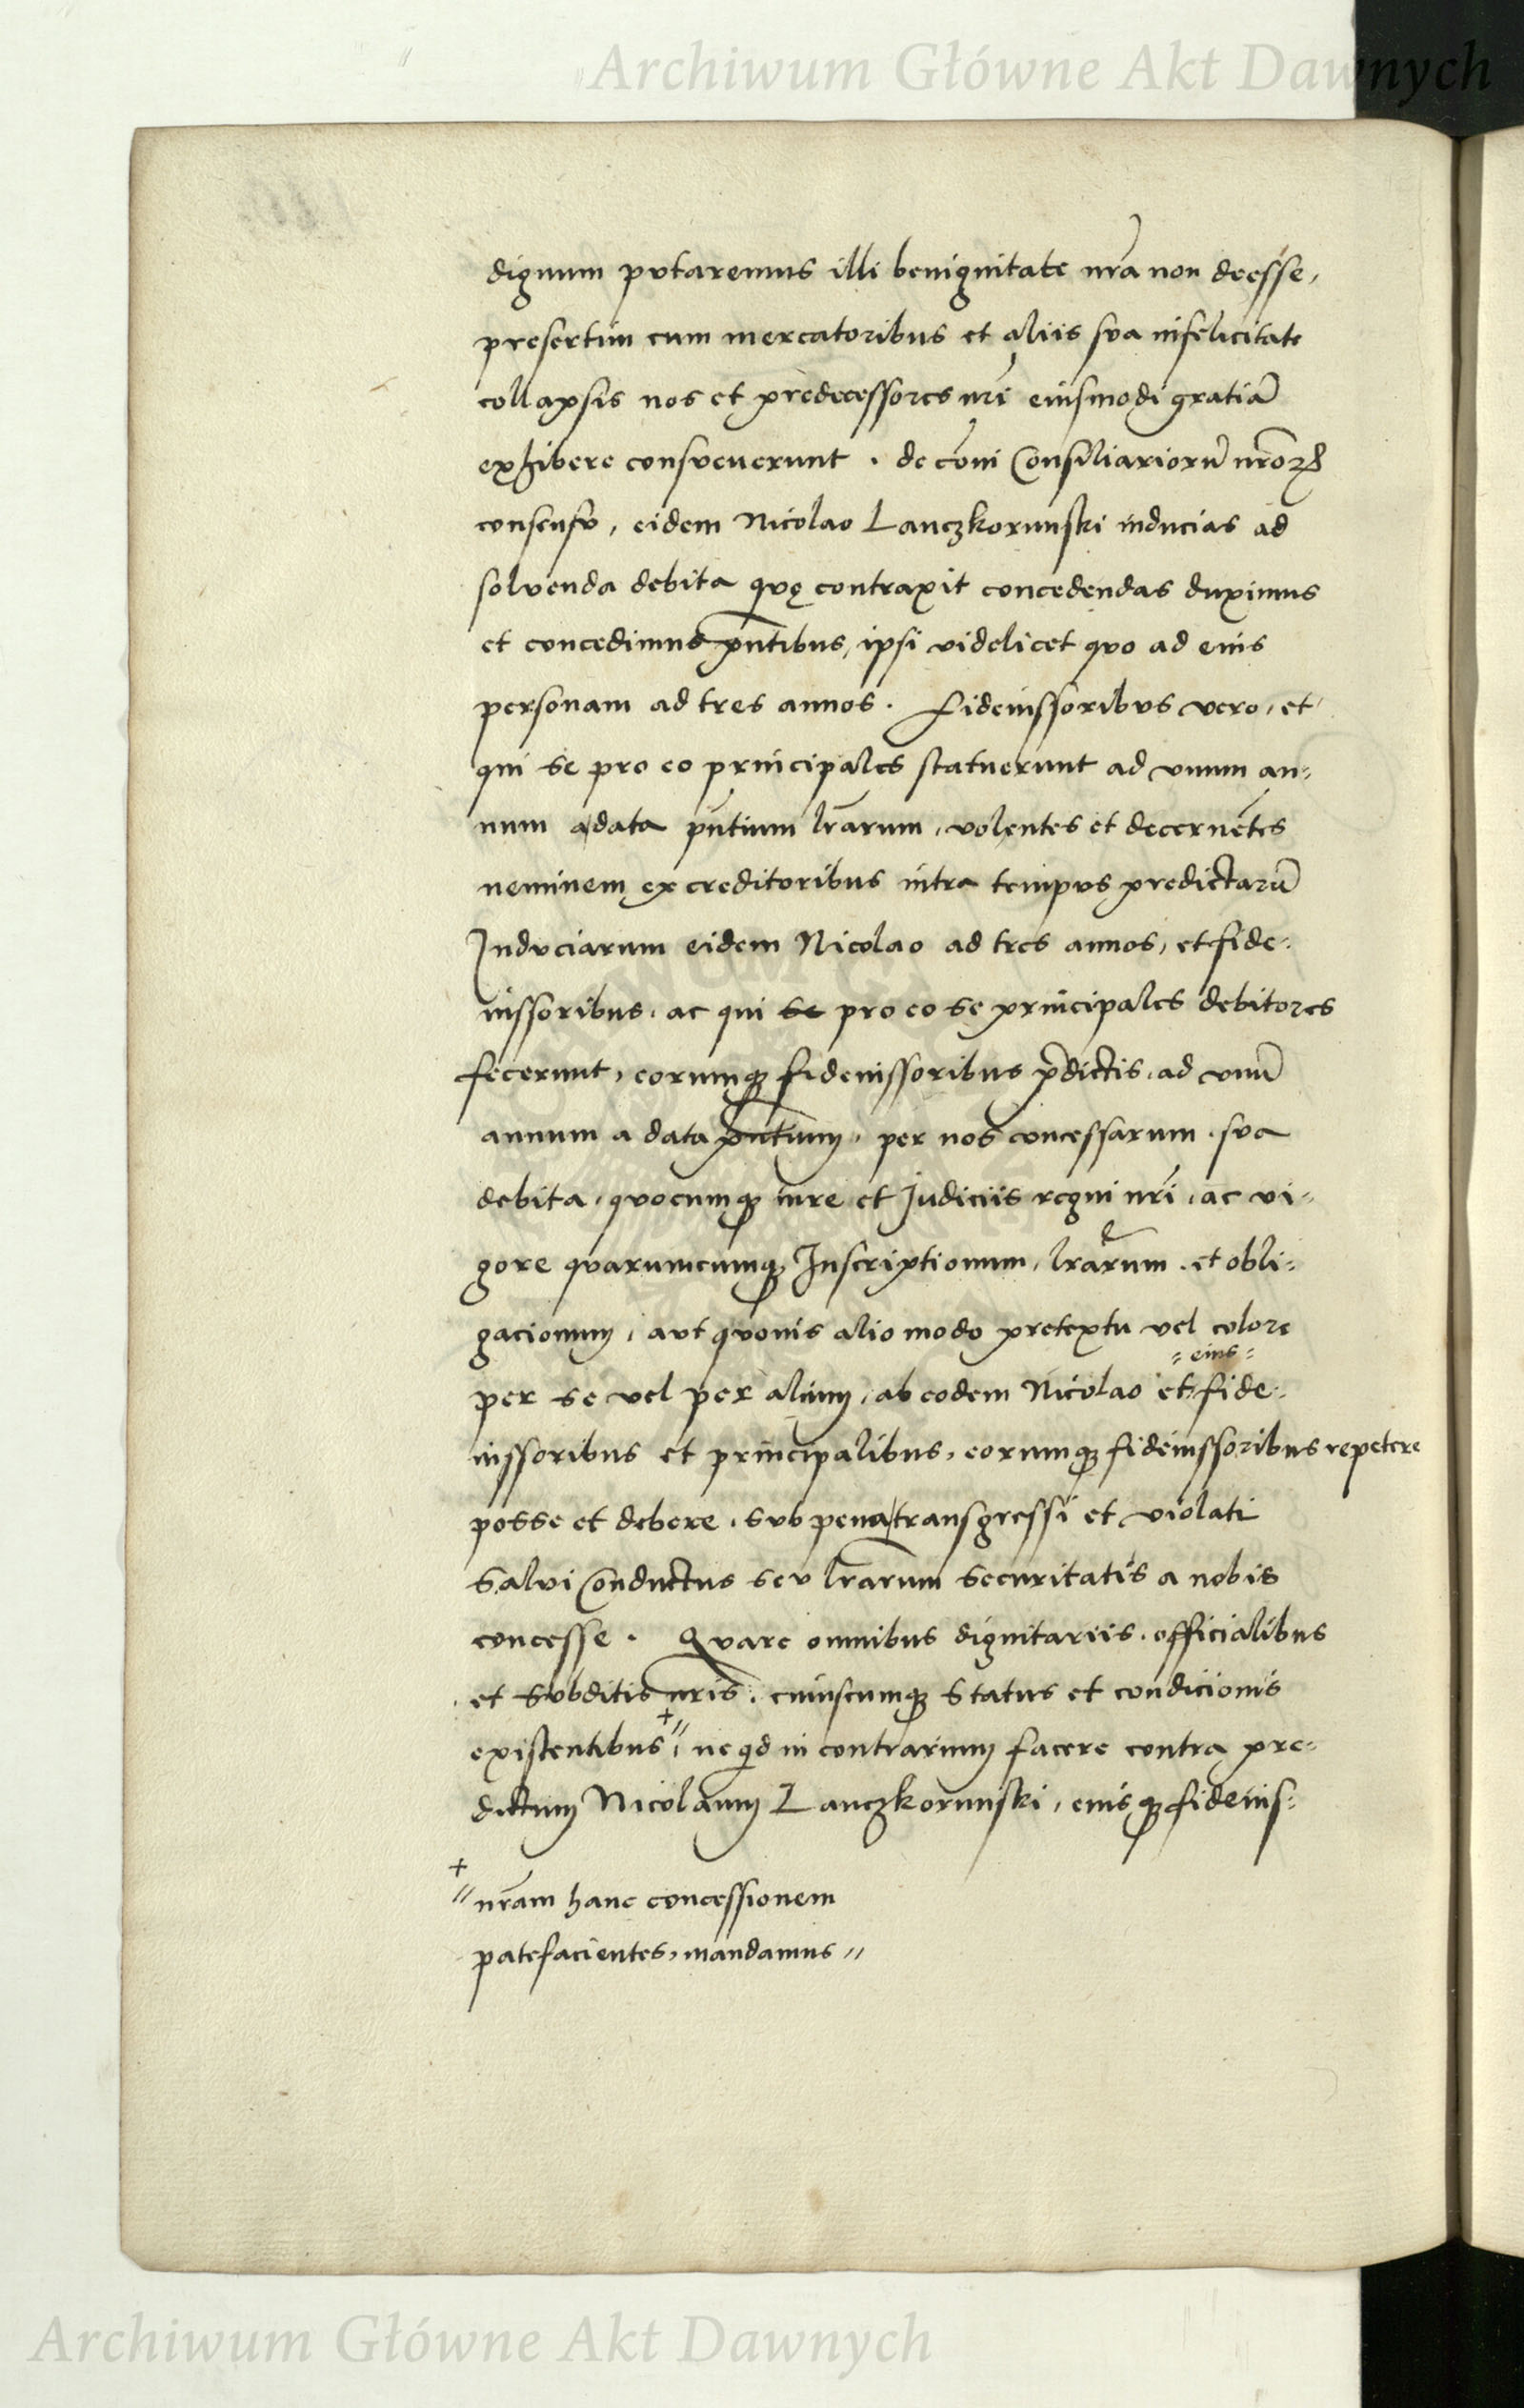 Archiwum Główne Akt Dawnych
dignum putaremus illi benignitate nr̄a non deesse,
presertim cum mercatoribus et aliis sua infelicitate
collapsis nos et predecessores nr̄i eiusmodi gratiā
exhibere consueuerunt . de cōni Consiliariorū nr̄oꝝ
consensu, eidem Nicolao Lanczkorunski inducias ad
soluenda debita quę contraxit concedendas duximus
et concedimus pn̄tibus, ipsi videlicet quo ad eius
personam ad tres annos . Fideiussoribus vero, et
qui se pro eo principales statuerunt ad vnum an=
num a data pn̄tium lr̄arum, volentes et decernētes
neminem ex creditoribus intra tempus predictarū
Induciarum eidem Nicolao ad tres annos, et fide=
iussoribus, ac qui se pro eo se principales debitores
fecerunt, eorumqꝫ fideiussoribus p̄dictis, ad vnū
annum a data pn̄tium, per nos concessarum . sua
debita, quocumqꝫ iure et Judiciis regni nr̄i, ac vi=
gore quarumcumqꝫ Inscriptionum, lr̄arum . et obli=
gacionum, aut quouis alio modo pretextu vel colore
per se vel per alium, ab eodem Nicolao et =eius= fide=
iussoribus et principalibus, eorumqꝫ fideiussoribus repetere
posse et debere . sub pena transgressi et violati
Salui Conductus seu lr̄arum securitatis a nobis
concesse . Quare omnibus dignitariis . officialibus
et subditis nr̄is . cuiuscumqꝫ status et condicionis
existentibus +//, ne qd in contrarium facere contra pre=
dictum Nicolaum Lanczkorunski, eiusqꝫ fideius=
+
// nr̄am hanc concessionem
patefacientes, mandamus //
Archiwum Główne Akt Dawnych